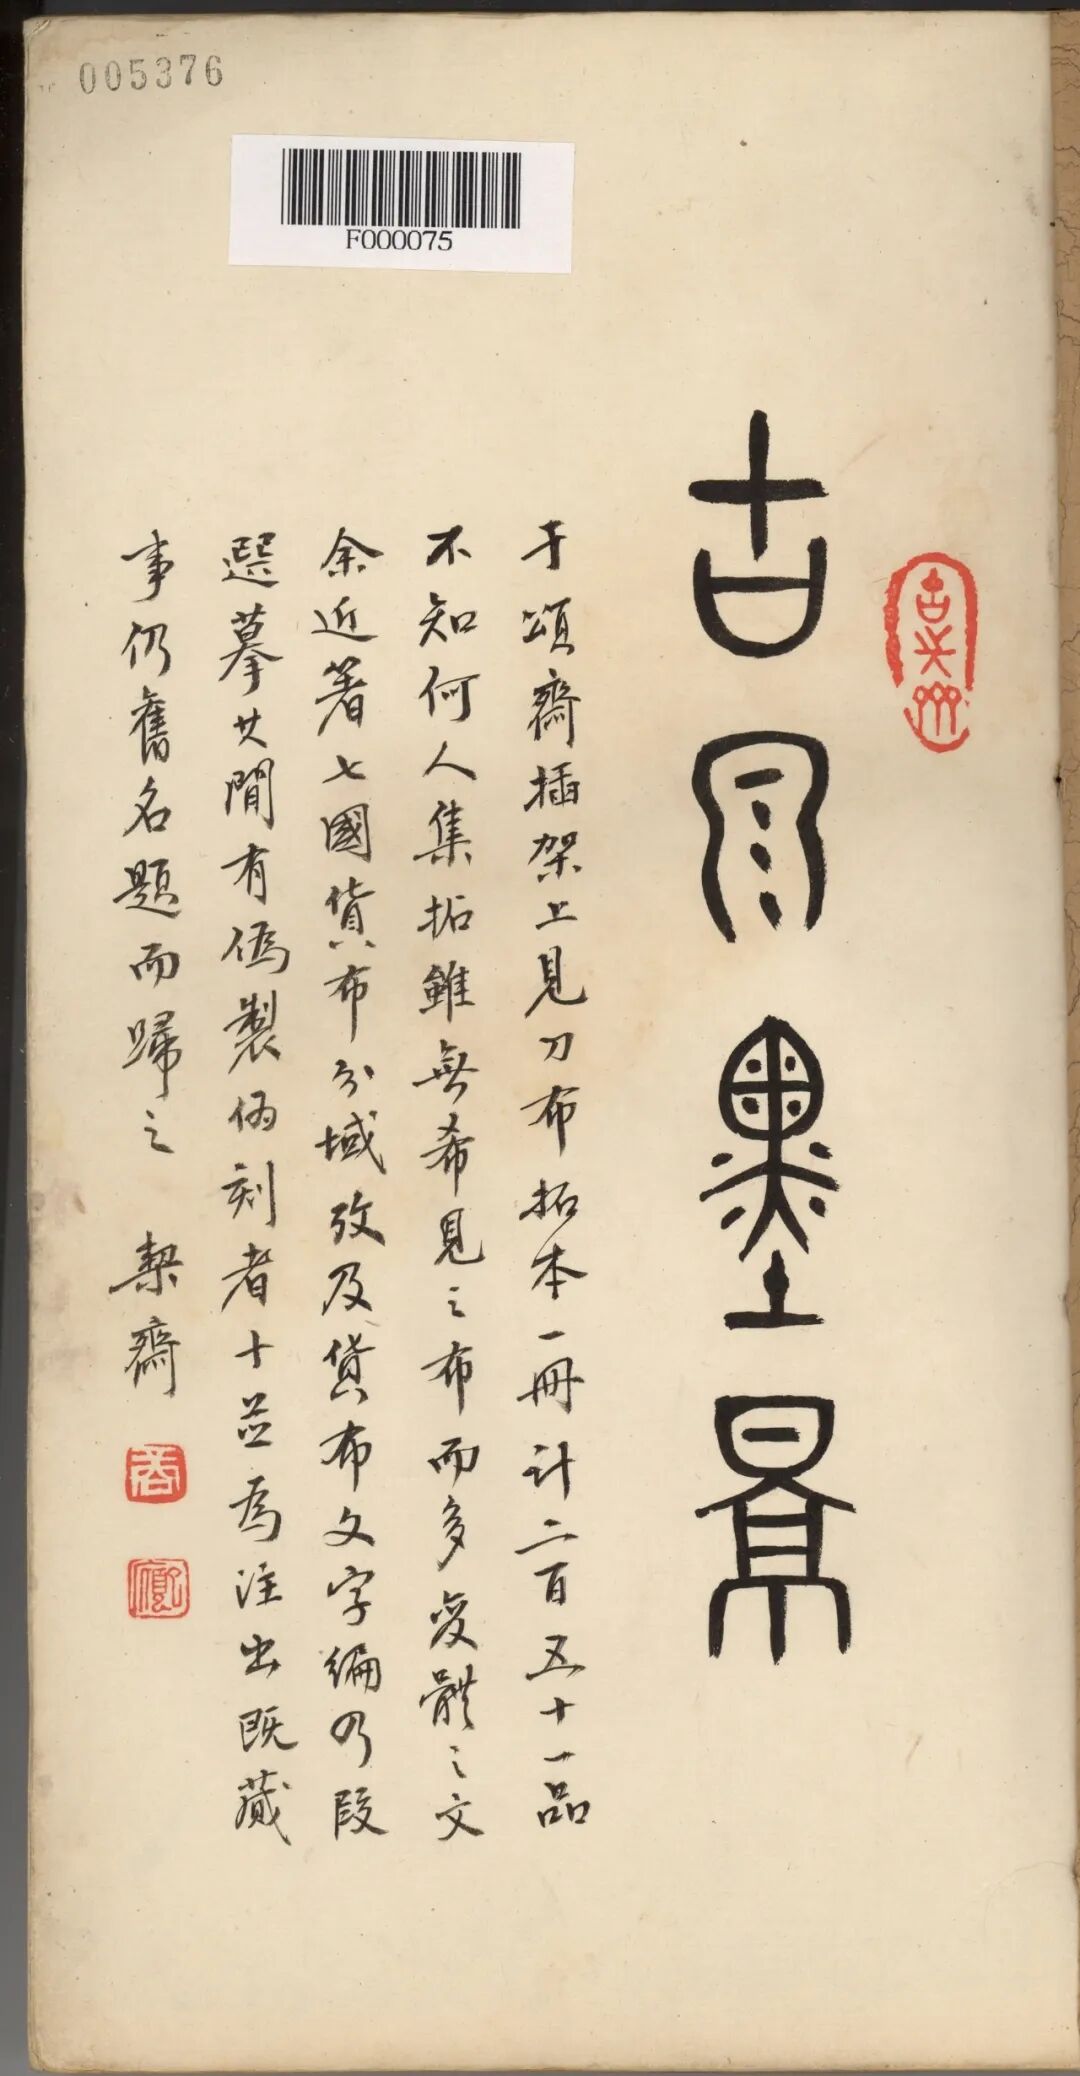 005376
F000075
古貝墨景
于頌齋插架上見刀布拓本一冊計二百五十一品
不知何人集拓雖無希見之布而多變體之文
余近著七國貨布分域攷及貨布文字編乃叚
選摹其間有偽製偽刻者十並為注出既蕆
事仍舊名題而歸之 契齋